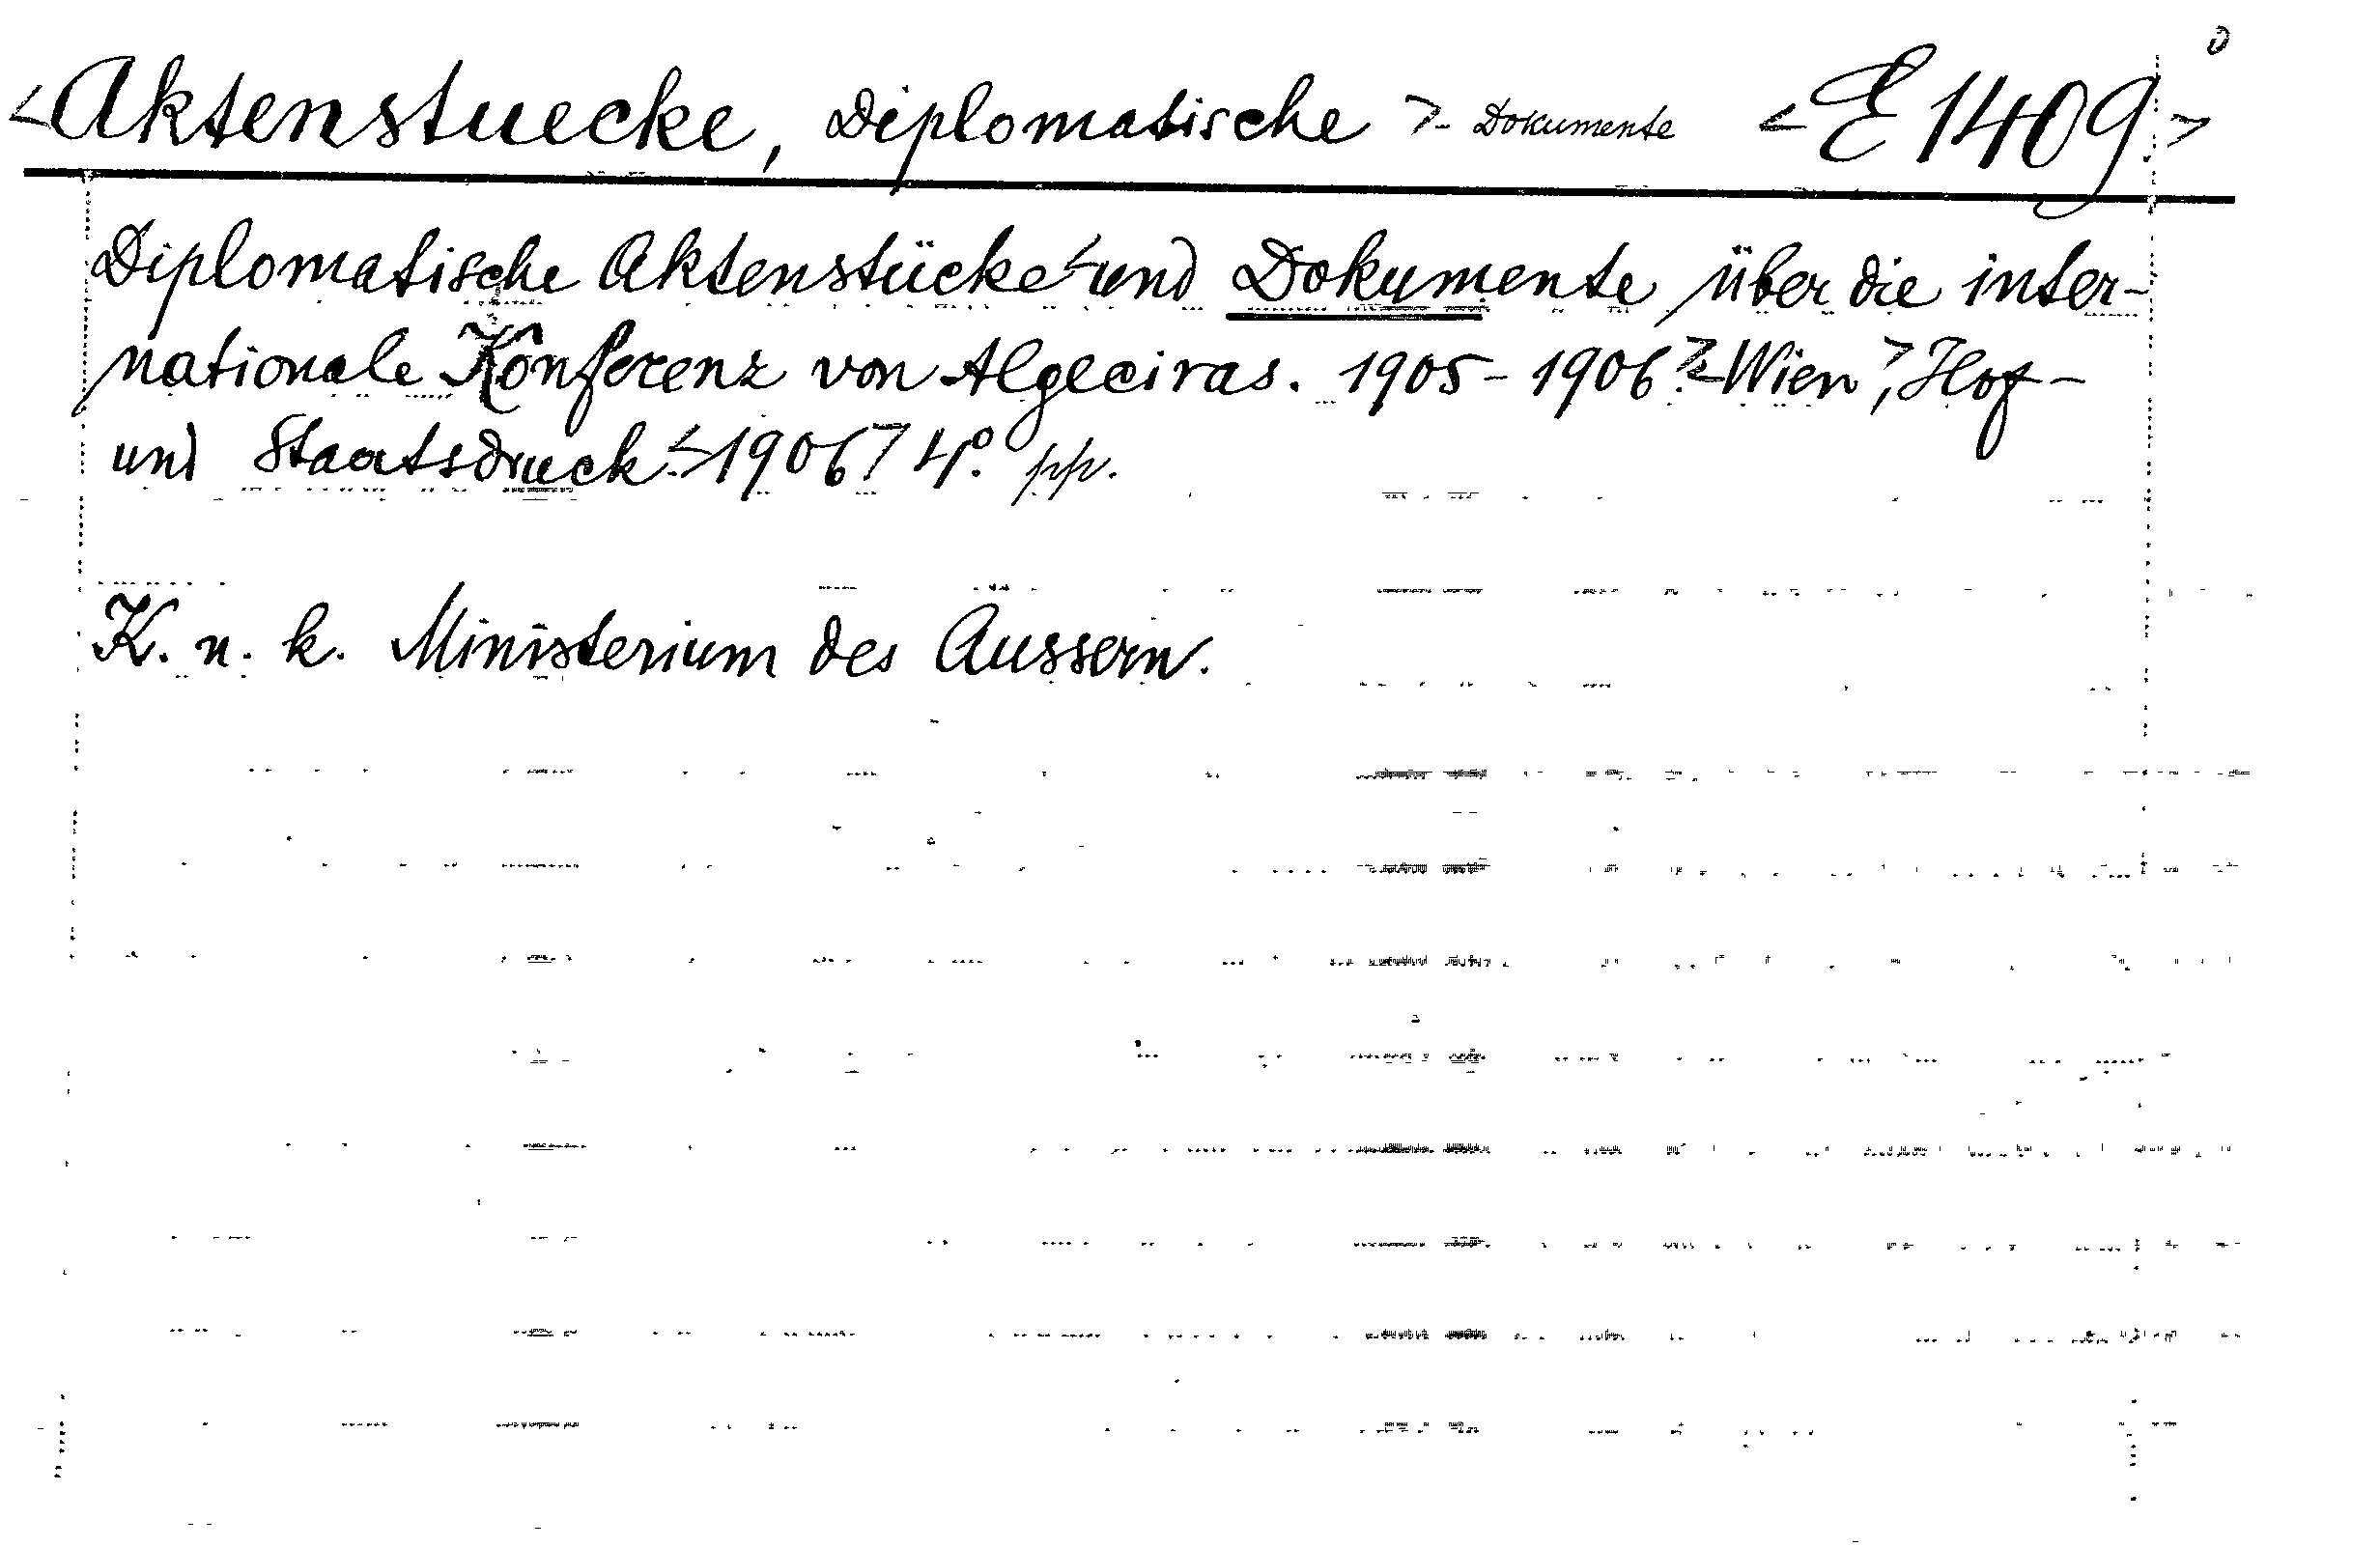 <Aktenstuecke, Diplomatische>- Dokumente <E1409.>
Diplomatische Aktenstücke <und Dokumente über die inter-
nationale Konferenz von Algeciras. 1905-1906.> <Wien>, Hof-
und Staatsdruck. <1906> 4°. pp.
K. u. k. Ministerium des Aussern.